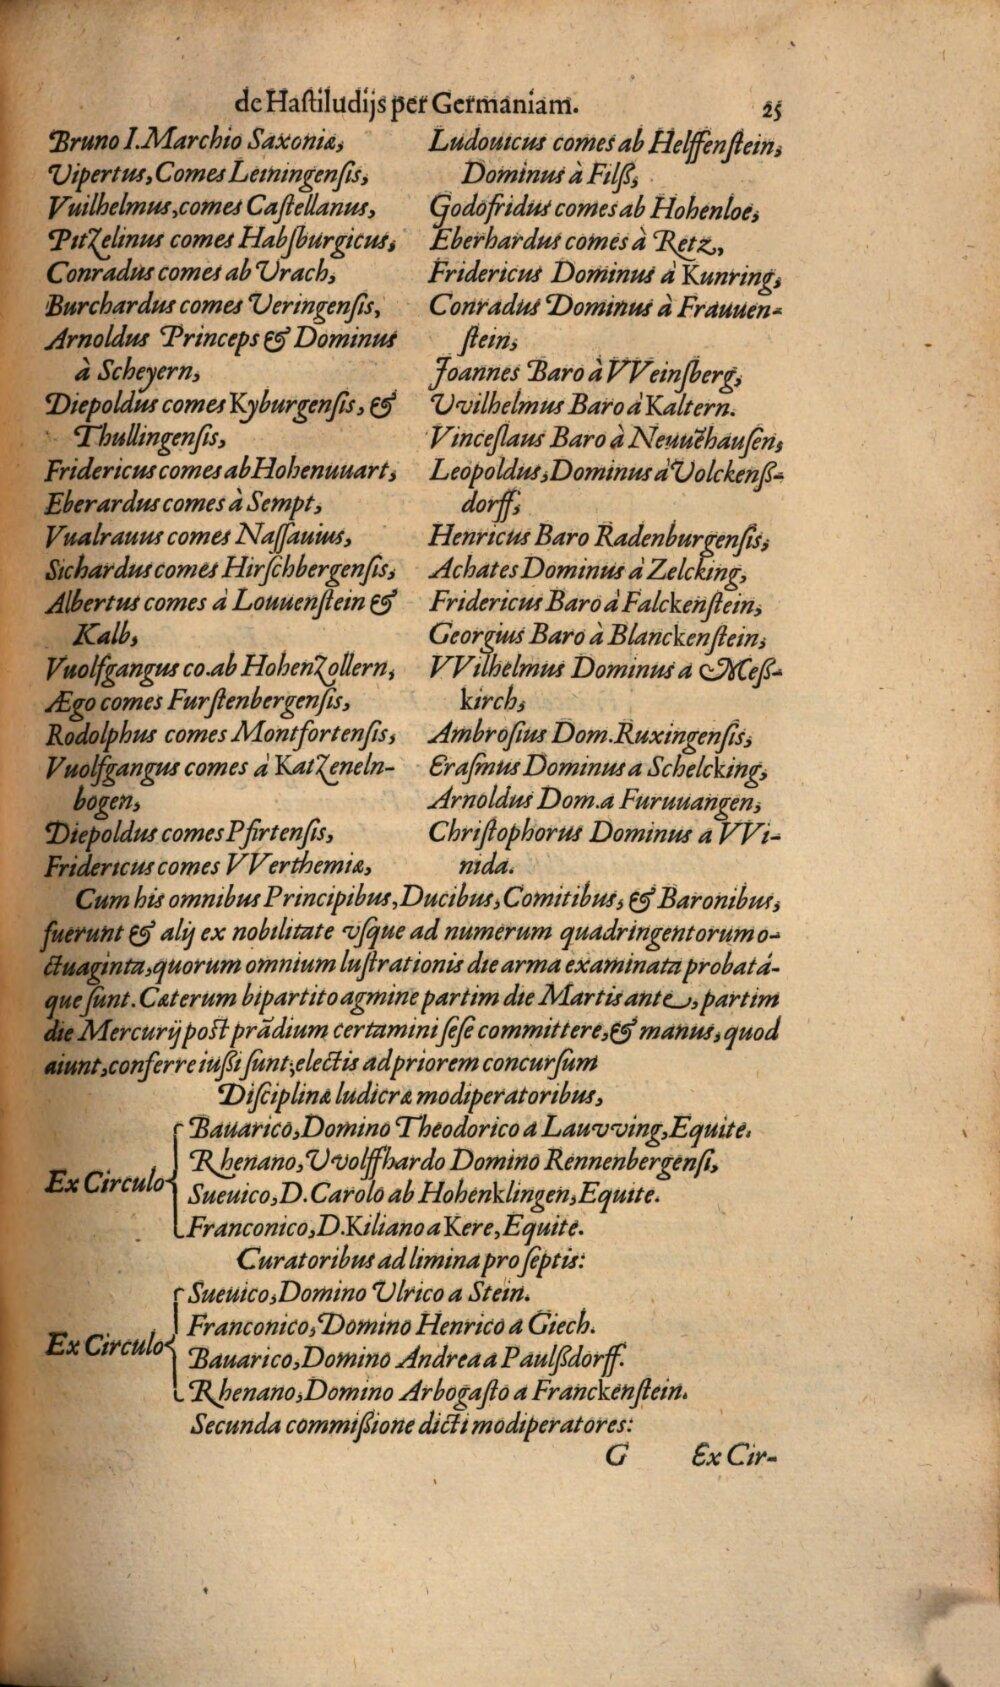 de Haſtiludijs per Germaniam. 25
Bruno I. Marchio Saxoniæ,
Vipertus, Comes Leiningenſis,
Vuilhelmus, comes Caſtellanus,
Pitzelinus comes Habſburgicus,
Conradus comes ab Vrach,
Burchardus comes Veringenſis,
Arnoldus Princeps & Dominus
à Scheyern,
Diepoldus comes Kyburgenſis, &
Thullingenſis,
Fridericus comes ab Hohenuuart,
Eberardus comes à Sempt,
Vualrauus comes Naſſauius,
Sichardus comes Hirſchbergenſis,
Albertus comes à Louuenſtein &
Kalb,
Vuolfgangus co. ab Hohenzollern,
Ægo comes Furſtenbergenſis,
Rodolphus comes Montfortenſis,
Vuolfgangus comes à Katzeneln-
bogen,
Diepoldus comes Pfirtenſis,
Fridericus comes VVerthemiæ,
Ludouicus comes ab Helffenſtein,
Dominus à Filß,
Godofridus comes ab Hohenloe,
Eberhardus comes à Retz,
Fridericus Dominus à Kunring,
Conradus Dominus à Frauuen-
ſtein,
Joannes Baro à VVeinſberg,
Uvilhelmus Baro à Kaltern.
Vinceſlaus Baro à Neuuēhauſen,
Leopoldus, Dominus à Volckenß-
dorff,
Henricus Baro Radenburgenſis,
Achates Dominus à Zelcking,
Fridericus Baro à Falckenſtein,
Georgius Baro à Blanckenſtein,
VVilhelmus Dominus a Meß-
kirch,
Ambroſius Dom. Ruxingenſis,
Eraſmus Dominus a Schelcking,
Arnoldus Dom. a Furuuangen,
Chriſtophorus Dominus a VVi-
nida.
Cum his omnibus Principibus, Ducibus, Comitibus, & Baronibus,
fuerunt & alij ex nobilitate vſque ad numerum quadringentorum o-
ctuaginta, quorum omnium luſtrationis die arma examinata probatá-
que ſunt. Cæterum bipartito agmine partim die Martis ante, partim
die Mercurij poſt prādium certamini ſeſe committere, & manus, quod
aiunt, conferre iußi ſunt, electis ad priorem concurſum
Diſciplinæ ludicræ modiperatoribus,
Ex Circulo
Bauarico, Domino Theodorico a Lauvving, Equite.
Rhenano, Uvolffhardo Domino Rennenbergenſi,
Sueuico, D. Carolo ab Hohenklingen, Equite.
Franconico, D. Kiliano a Kere, Equite.
Curatoribus ad limina pro ſeptis:
Ex Circulo
Sueuico, Domino Ulrico a Stein.
Franconico, Domino Henrico a Giech.
Bauarico, Domino Andrea a Paulßdorff.
Rhenano, Domino Arbogaſto a Franckenſtein.
Secunda commißione dicti modiperatores:
G Ex Cir-